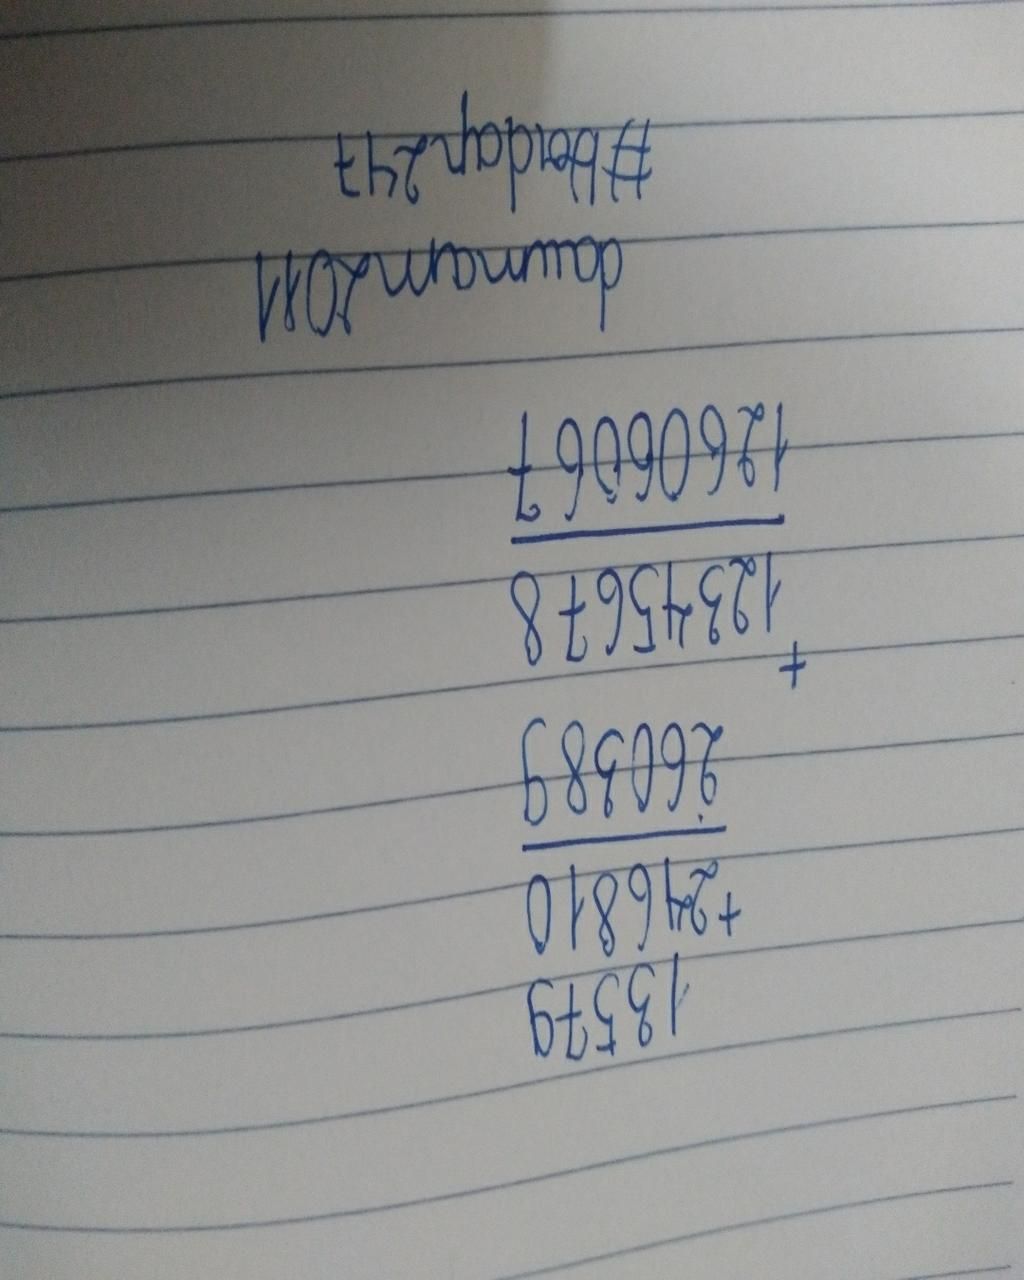 13579
+246810
260389
+
12345678
12606067
daumam2011
#hoidap247